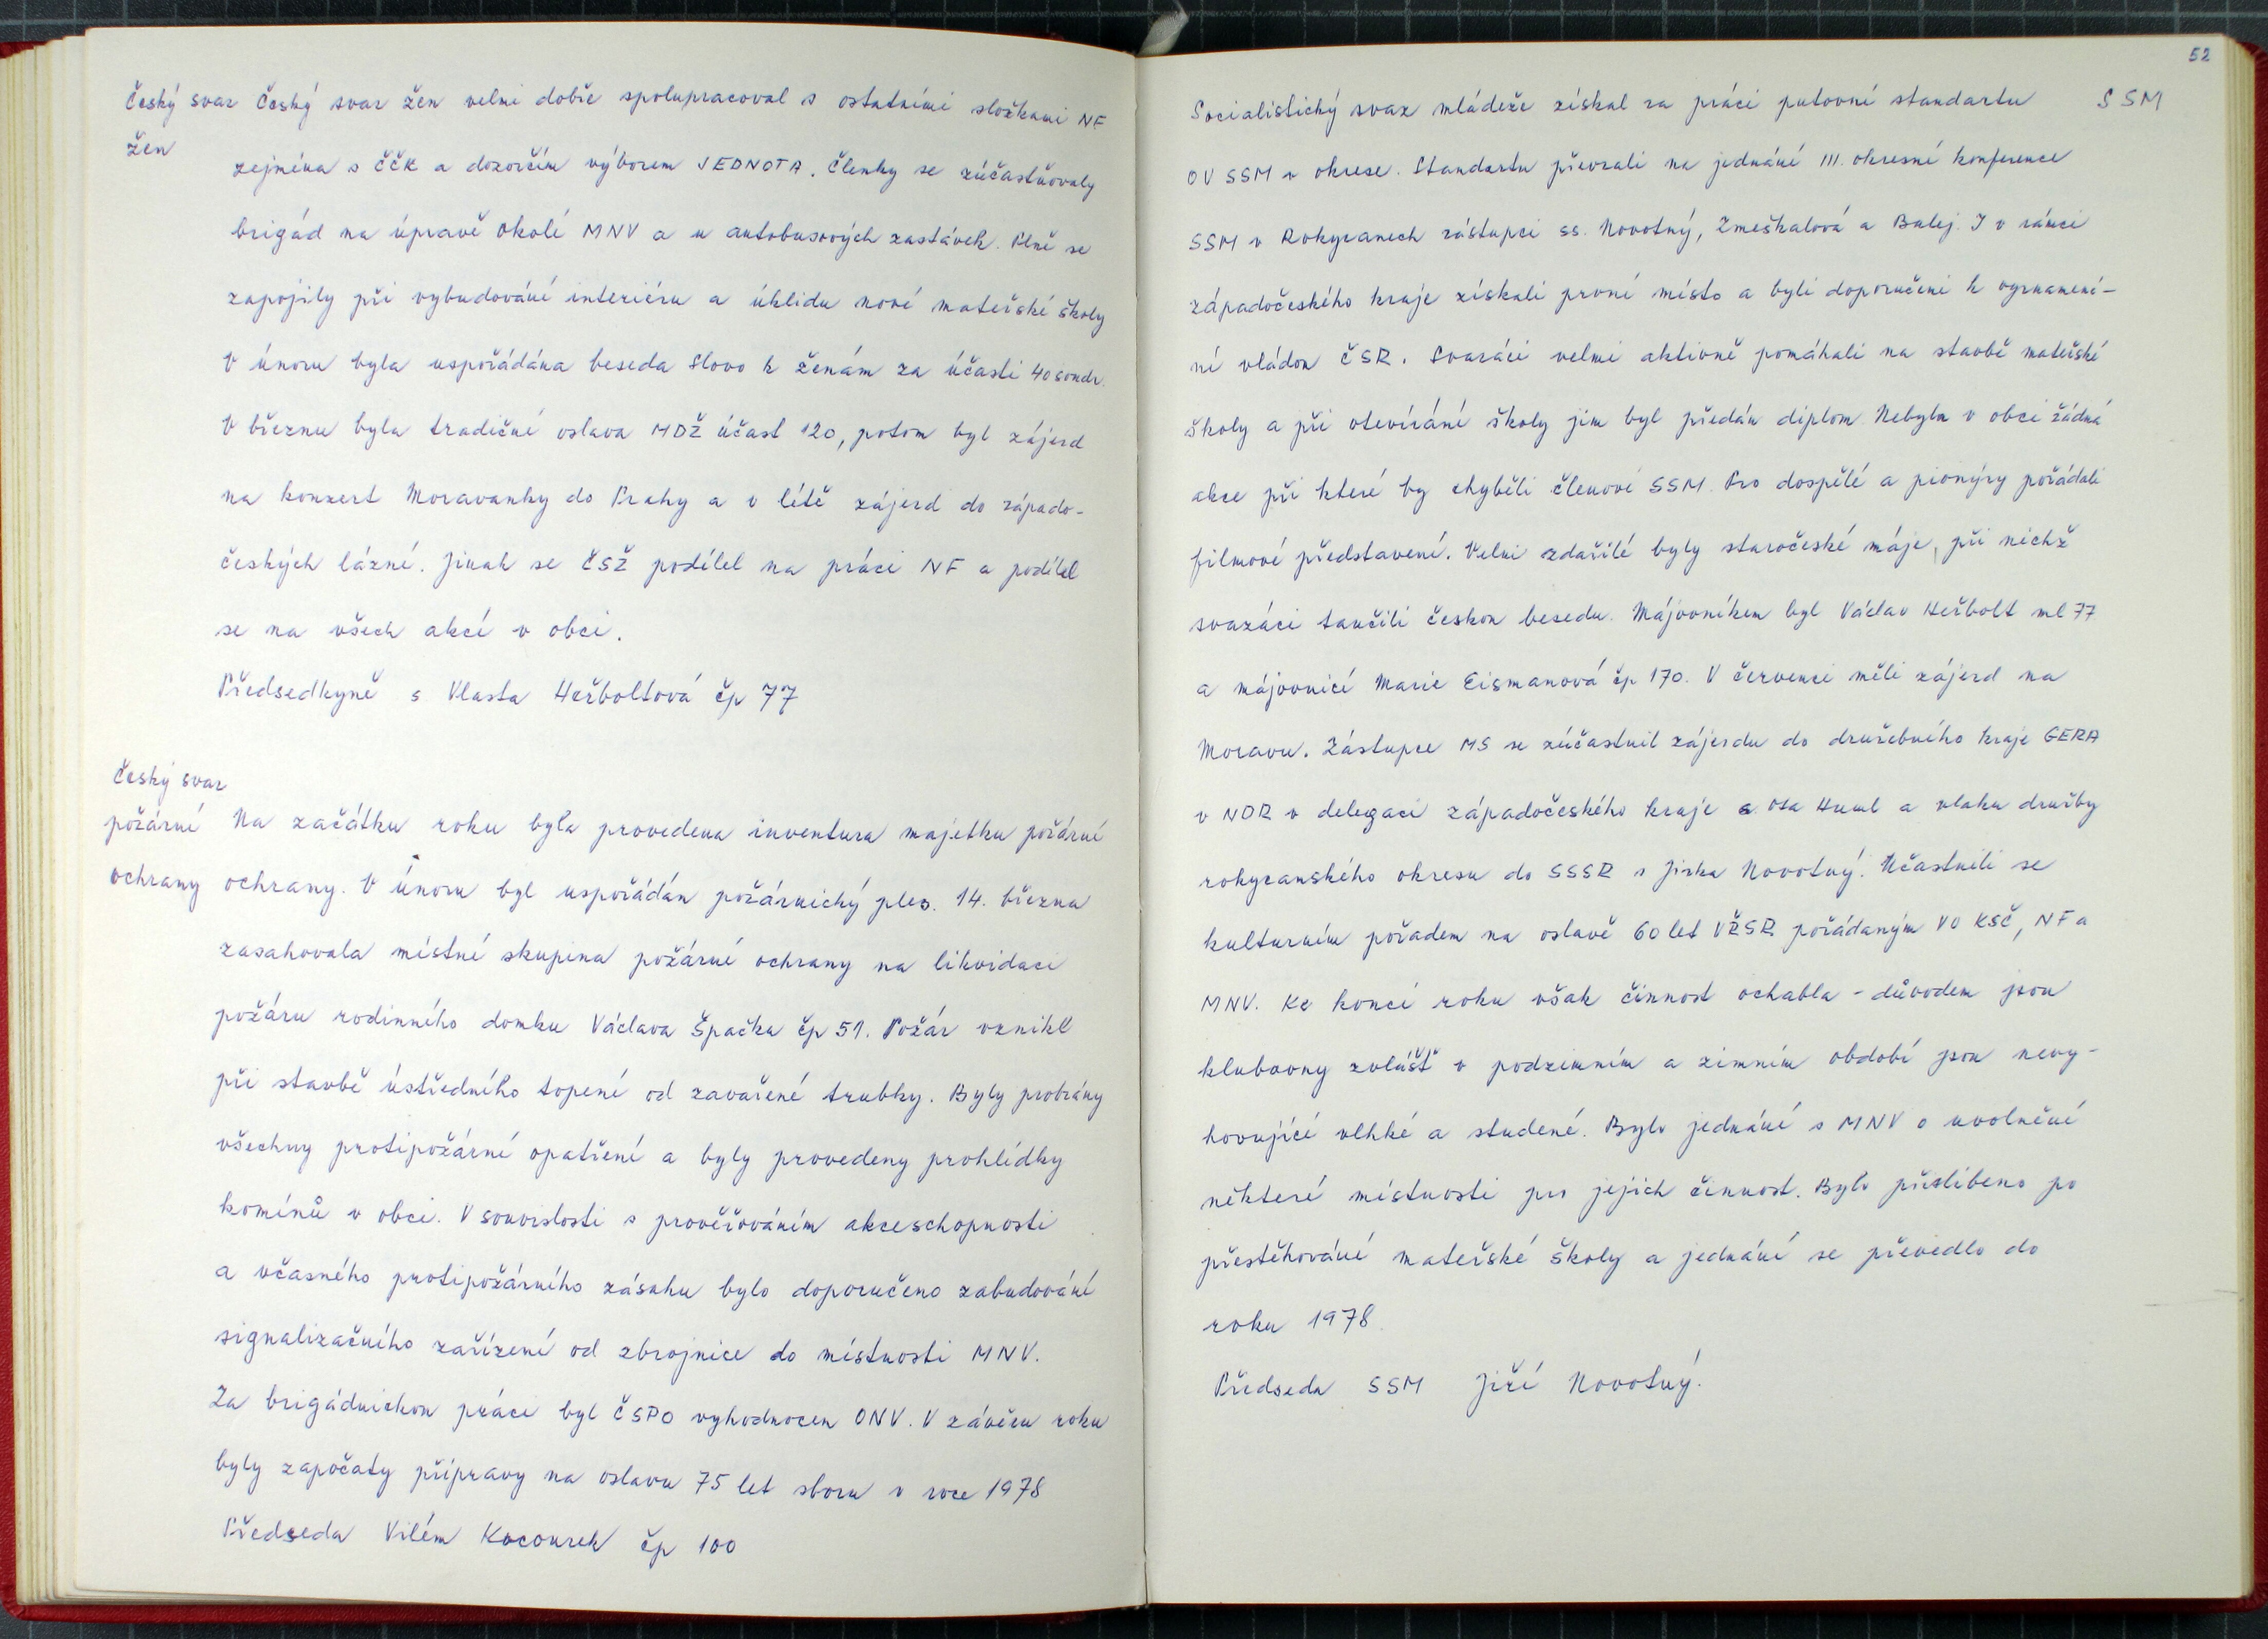 Český svaz žen
Český svaz žen velmi dobře spolupracoval s ostatními složkami NF
zejména s ČČK a dozorčím výborem JEDNOTA. Členky se zúčastňovaly
brigád na úpravě okolí MNV a u autobusových zastávek. Plně se
zapojily při vybudování interiéru a úklidu nové mateřské školy
V únoru byla uspořádána beseda Slovo k ženám za účasti 40 soudr.
V březnu byla tradiční oslava MDŽ účast 120, potom byl zájezd
na konzert Moravanky do Prahy a v létě zájezd do západo-
českých lázní. Jinak se ČSŽ podílel na práci NF a podílel
se na všech akcí v obci.
Předsedkyně s Vlasta Heřboltová čp 77
Český svaz
požární
ochrany
Na začátku roku byla provedena inventura majetku požární
ochrany. V Únoru byl uspořádán požárnický ples. 14. března
zasahovala místní skupina požární ochrany na likvidaci
požáru rodinného domku Václava Špačka čp 51. Požár vznikl
při stavbě ústředního topení od zavařené trubky. Byly probrány
všechny protipožární opatření a byly provedeny prohlídky
komínů v obci. V souvislosti s prověřováním akceschopnosti
a včasného protipožárního zásahu bylo doporučeno zabudování
signalizačního zařízení od zbrojnice do místnosti MNV.
Za brigádnickou práci byl ČSPO vyhodnocen ONV. V závěru roku
byly započaty přípravy na oslavu 75 let sboru v roce 1978
Předseda Vilém Kocourek čp 100
52
SSM
Socialistický svaz mládeže získal za práci putovní standartu
OV SSM v okrese. Standartu převzali na jednání III. okresní konference
SSM v Rokycanech zástupci ss. Novotný, Zmeškalová a Balej. I v rámci
západočeského kraje získali první místo a byli doporučeni k vyznamená-
ní vládou ČSR. Svazáci velmi aktivně pomáhali na stavbě mateřské
školy a při otevírání školy jim byl předán diplom. Nebyla v obci žádná
akce při které by chyběli členové SSM. Pro dospělé a pionýry pořádali
filmové představení. Velmi zdařilé byly staročeské máje, při nichž
svazáci tančili českou besedu. Májovníkem byl Václav Heřbolt ml 77
a májovnicí Marie Eismanová čp 170. V červenci měli zájezd na
Moravu. Zástupce MS se zúčastnil zájezdu do družebního kraje GERA
v NDR v delegaci západočeského kraje s. Ota Huml a vlaku družby
rokycanského okresu do SSSR s Jirka Novotný. Účastnili se
kulturním pořadem na oslavě 60 let VŘSR pořádaným VO KSČ, NF a
MNV. Ke konci roku však činnost ochabla - důvodem jsou
klubovny zvlášť v podzimním a zimním období jsou nevy-
hovující vlhké a studené. Bylo jednání s MNV o uvolnění
některé místnosti pro jejich činnost. Bylo přislíbeno po
přestěhování mateřské školy a jednání se převedlo do
roku 1978.
Předseda SSM Jiří Novotný.